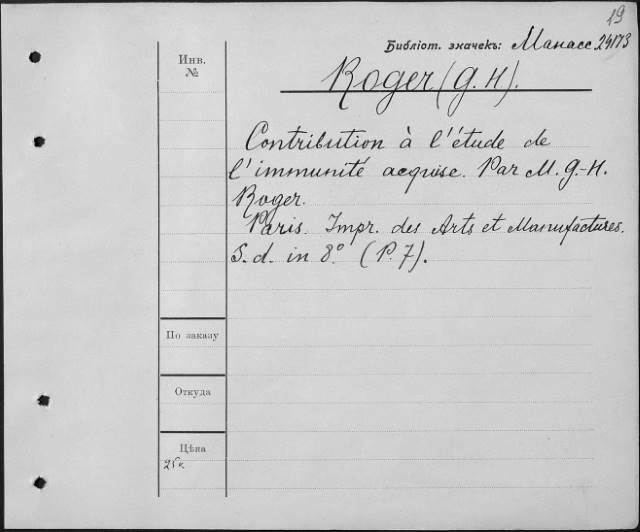 19
Библіот. значекъ: Манасс 24173
Инв.
№
Roger (G. H).
Contribution à l'étude de
l'immunité acquise. Par M. G.-H.
Roger.
Paris. Impr. des Arts et Manufactures.
S. d. in 8.º (P. 7).
По заказу
Откуда
Цѣна
25к